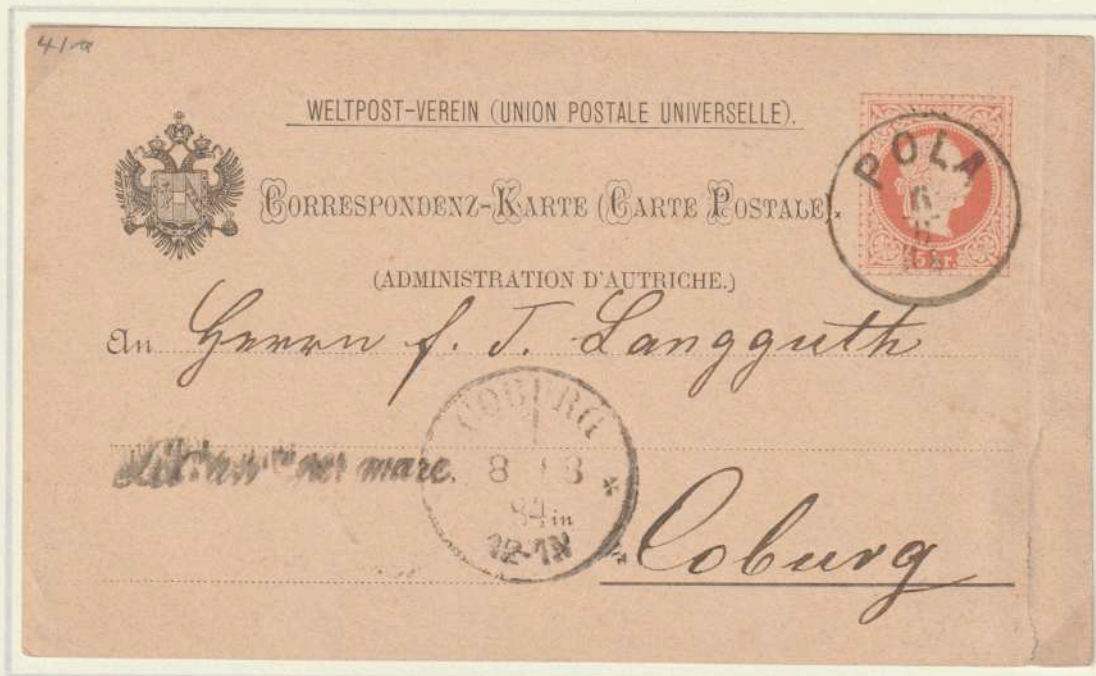 WELTPOST-VEREIN (UNION POSTALE UNIVERSELLE).
CORRESPONDENZ-KARTE (CARTE POSTALE).
(ADMINISTRATION D'AUTRICHE.)
POLA
5 kr.
An Herrn f. J. Langguth
COBURG
8 3
84
12-1N
mare.
in Coburg